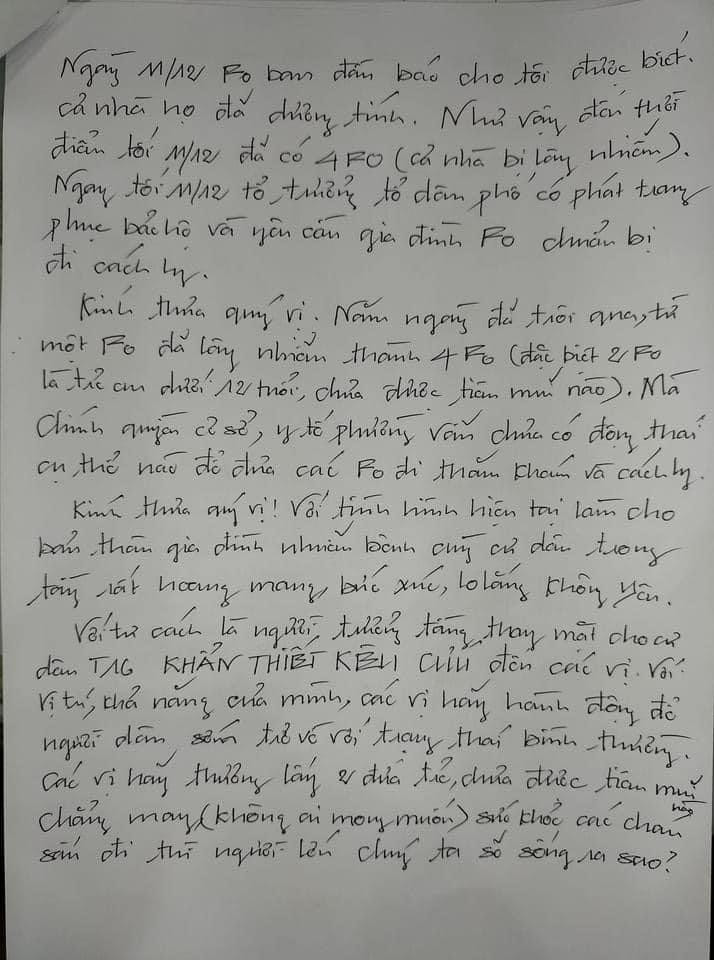 Ngày 11/12 Fo ban đầu báo cho tôi được biết.
cả nhà họ đã dương tính. Như vậy đến thời
điểm tối 11/12 đã có 4 FO (cả nhà bị lây nhiễm).
Ngay tối 11/12 tổ trưởng tổ dân phố có phát trang
phục bảo hộ và yêu cầu gia đình Fo chuẩn bị
đi cách ly.
Kính thưa quý vị. Năm ngày đã trôi qua, từ
một Fo đã lây nhiễm thành 4 Fo (đặc biệt 2 Fo
là trẻ em dưới 12 tuổi, chưa được tiêm mũi nào). Mà
Chính quyền cơ sở, y tế phường vẫn chưa có động thái
cụ thể nào để đưa các Fo đi thăm khám và cách ly.
Kính thưa quý vị! Với tình hình hiện tại làm cho
bản thân gia đình nhiễm bệnh cùng cư dân trong
tầng rất hoang mang, bức xúc, lo lắng không yên.
Với tư cách là người trưởng tầng, thay mặt cho cư
dân T16 KHẨN THIẾT KÊU CỨU đến các vị. Với
vị trí, khả năng của mình, các vị hãy hành động để
người dân sớm trở về với trạng thái bình thường.
Các vị hãy thương lấy 2 đứa trẻ, chưa được tiêm mũi nào
chẳng may (không ai mong muốn) sức khỏe các cháu
sấn đi thì người lớn chúng ta sẽ sống ra sao?